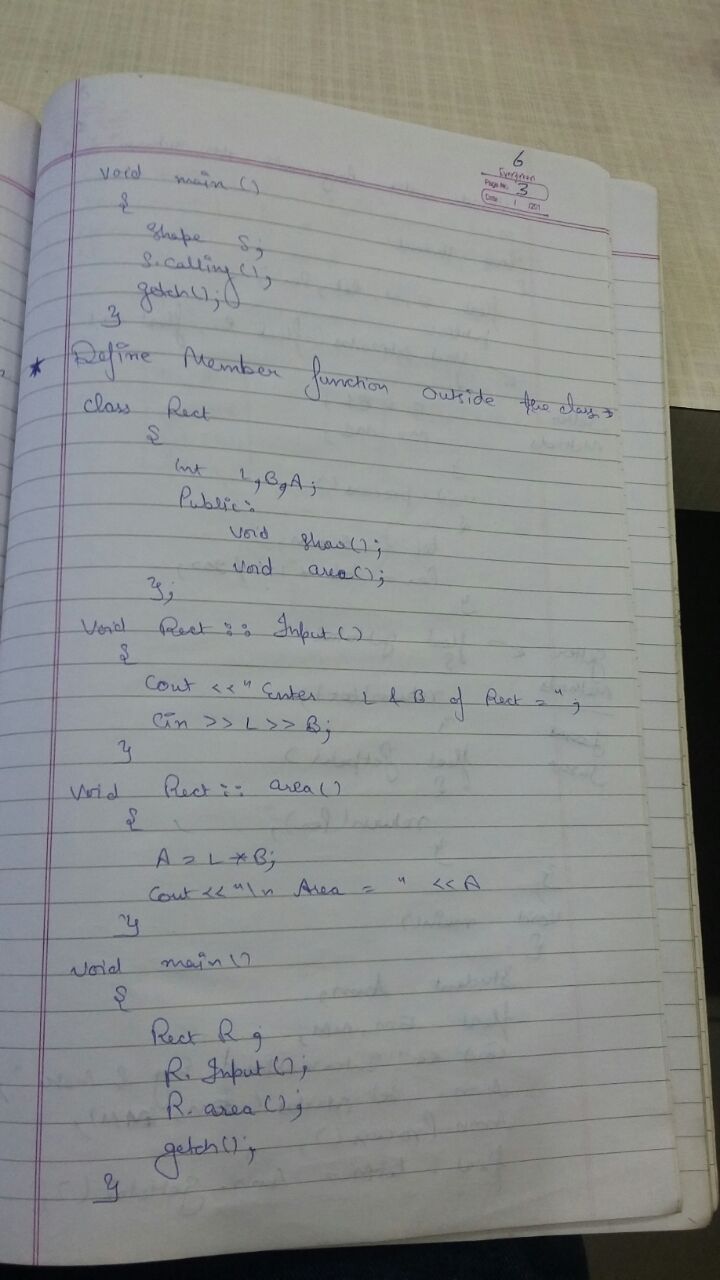 6
Evergreen
Page No. 3
Date / /201
void main()
{
Shape S;
S.calling();
getch();
}
* Define Member function outside the class→
class Rect
{
Int L,B,A;
Public:
void show();
void area();
};
Void Rect :: Input()
{
Cout <<" Enter L & B of Rect = ";
Cin >> L >> B;
}
void Rect :: area()
{
A = L * B;
Cout <<"\n Area = " << A
}
void main()
{
Rect R;
R. Input();
R. area();
getch();
}